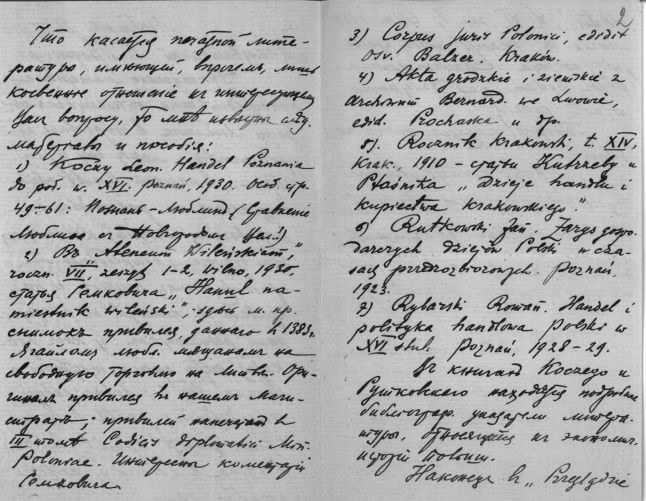 Что касается печатной лите-
ратуры, имеющей, впрочемъ, лишь
косвенное отношение къ интересующему
Вас вопросу, то мнѣ извѣстны слѣд.
материалы и пособия:
1) Koczy Leon. Handel Poznania
do poł. w. XVI. Poznań, 1930. Особ. стр.
49-61: Познань-Люблин (Сравнение
Люблина съ Новгородом Вел.!)
2) Въ „Ateneum Wileńskiem",
roczn. VII, zeszyt 1-2, Wilno, 1930.
статья Семковича „Hanul na-
miestnik wileński"; здѣсь м. пр.
снимокъ привилея, даннаго в 1383 г.
Ягайломъ любл. мѣщанамъ на
свободную торговлю на Литвѣ. Ори-
гиналъ привилея въ нашем Маги-
стратѣ; привилей напечатан в
III томѣ Codicis diplomatici Min.
Poloniae. Интересны коментарiй
Семковича
2
3) Corpus juris Polonici, edidit
Osv. Balzer. Kraków.
4) Akta grodzkie i ziemskie z
archiwum Bernard. we Lwowie,
edid. Prochaska и др.
5). Rocznik Krakowski, t. XIV,
Krak., 1910 - статья Kutrzeby и
Ptaśnika „Dzieje handlu i
kupiectwa krakowskiego".
6) Rutkowski Jan. Zarys gospo-
darczych dziejów Polski w cza-
sach przedrozbiorowych. Poznań,
1923.
7) Rybarski Roman. Handel i
polityka handlowa Polski w
XVI stul. Poznań, 1928-29.
Въ книгахъ Косего и
Рутковскего находятся подробные
библиограф. указатели литера-
туры, относящейся къ экономич.
исторiи Польши.
Наконецъ в „Przeglądzie